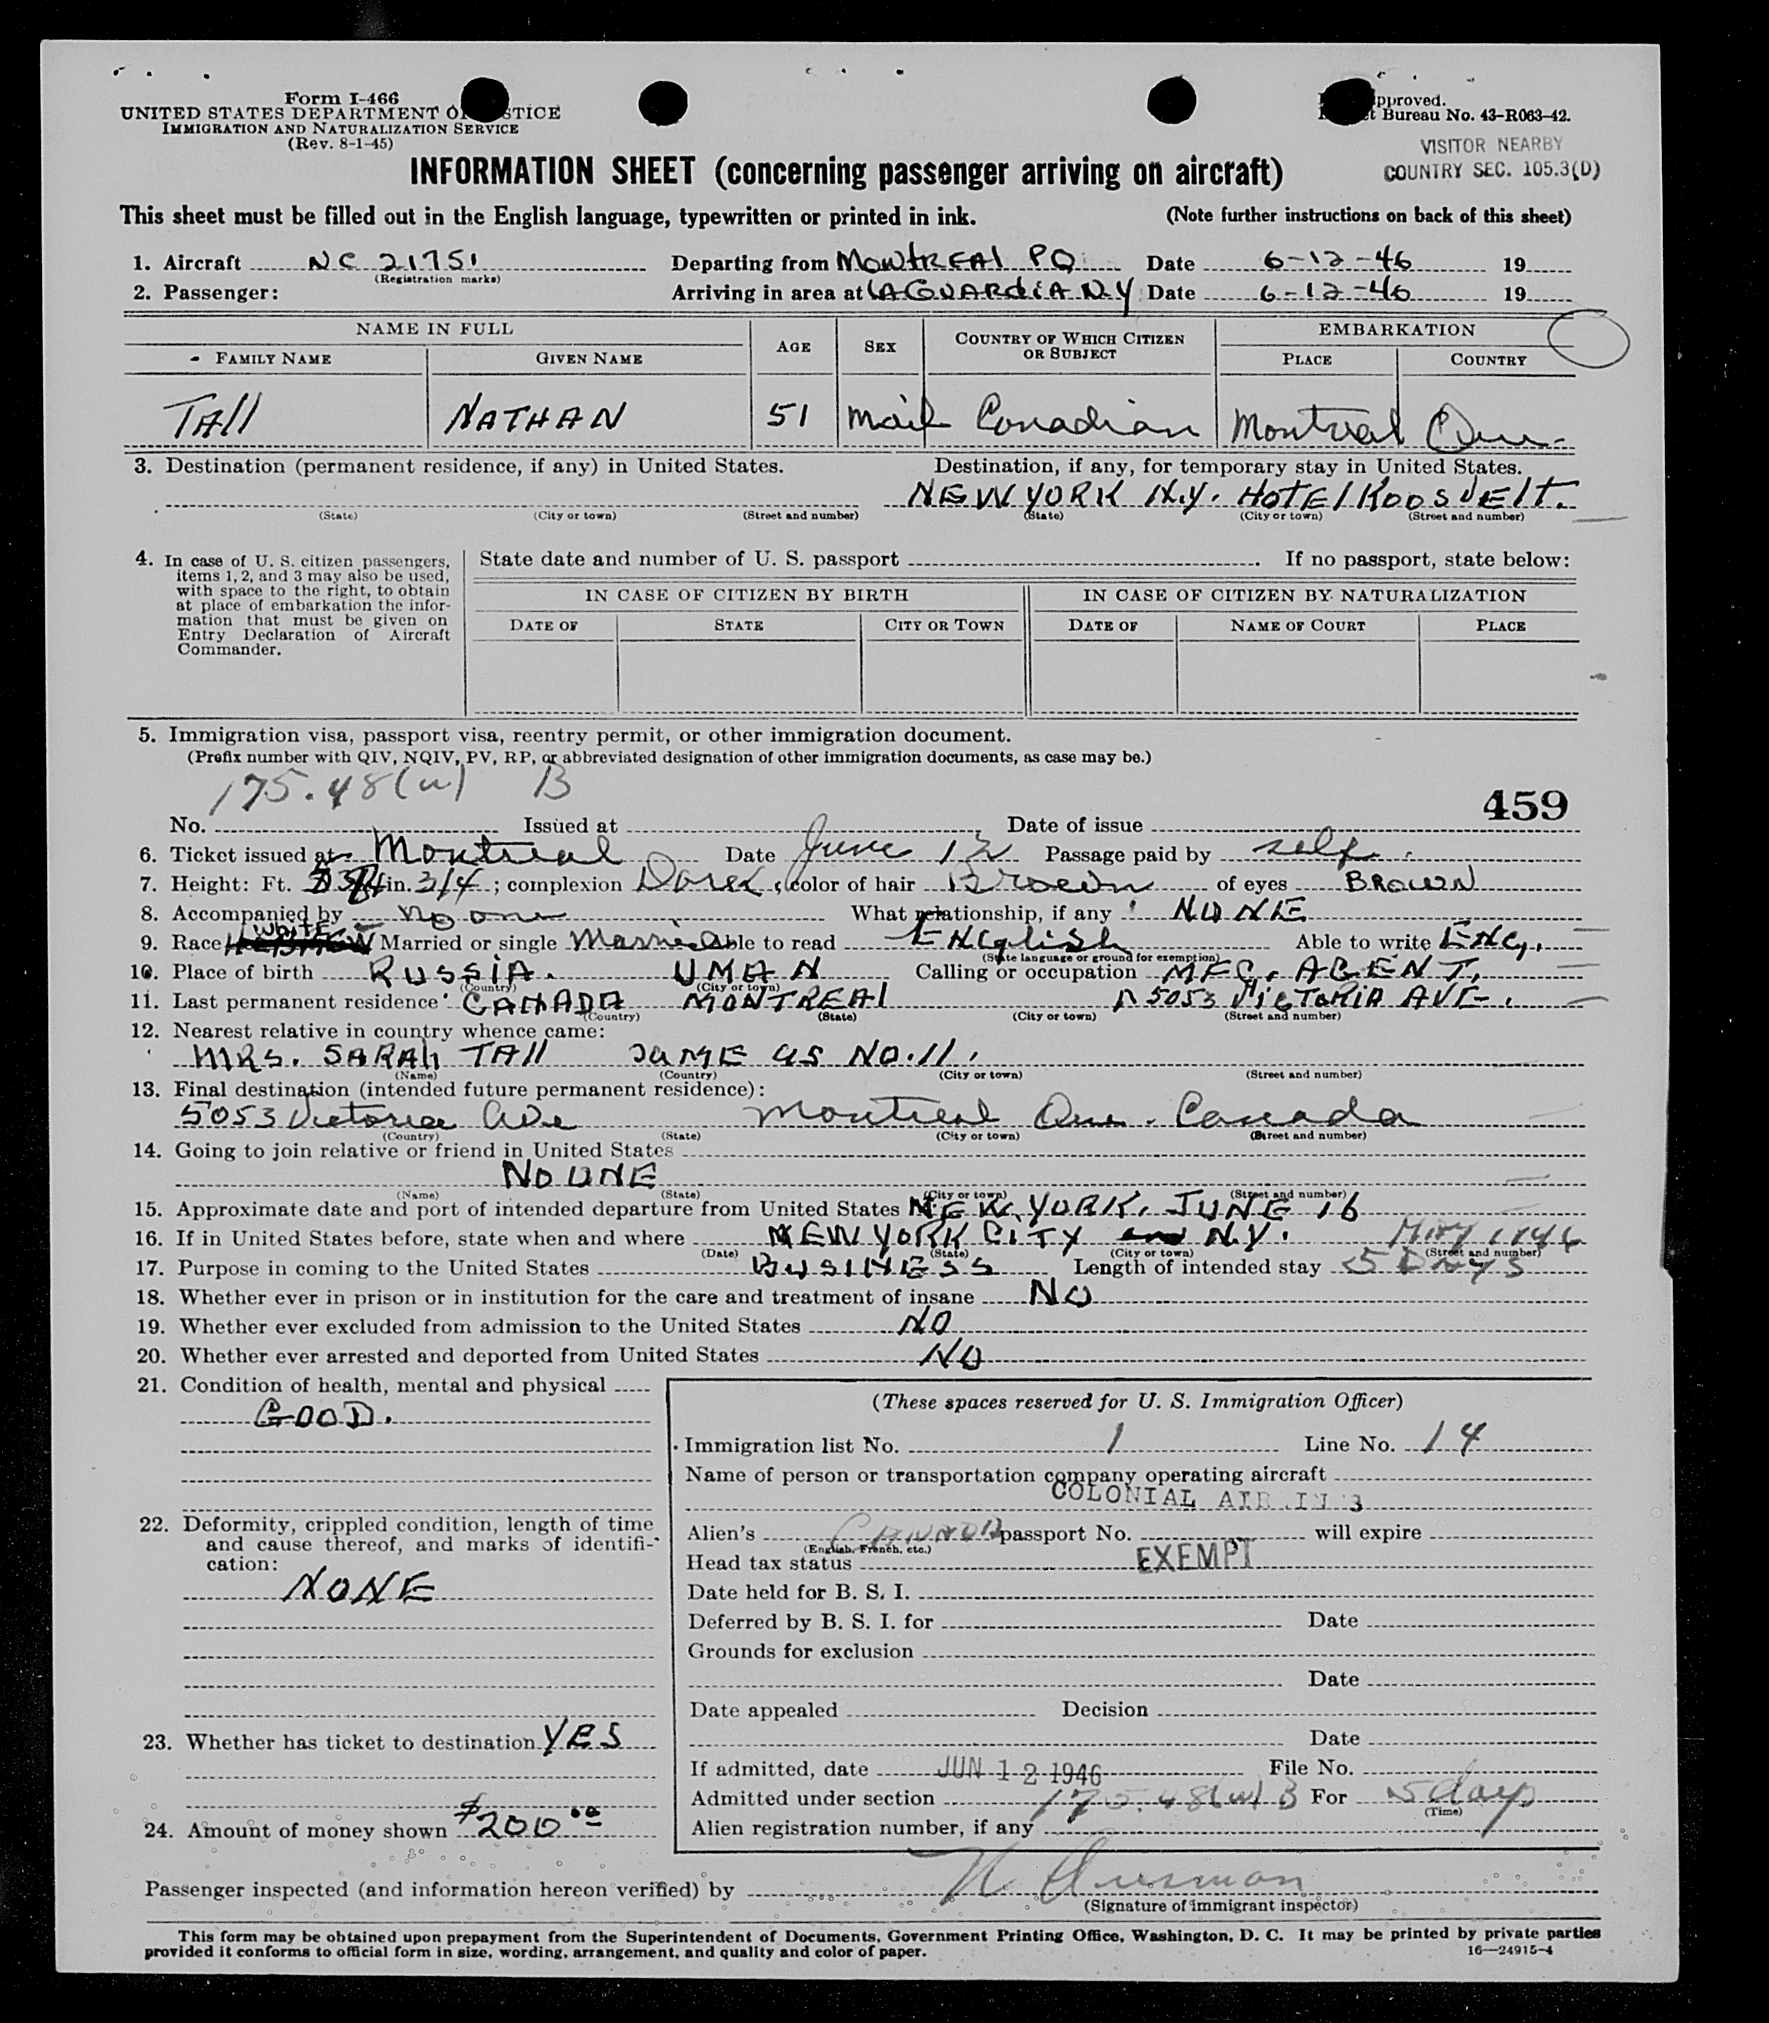 Form I-466
UNITED STATES DEPARTMENT OF JUSTICE
IMMIGRATION AND NATURALIZATION SERVICE
(Rev. 8-1-45)
pproved.
t Bureau No. 43-R063-42.
VISITOR NEARBY
COUNTRY SEC. 105.3(D)
INFORMATION SHEET (concerning passenger arriving on aircraft)
This sheet must be filled out in the English language, typewritten or printed in ink. (Note further instructions on back of this sheet)
1. Aircraft NC 21751 Departing from MONTREAL PQ Date 6-12-46 19
(Registration marks)
2. Passenger: Arriving in area at LAGUARDIA NY Date 6-12-46 19
NAME IN FULL AGE SEX COUNTRY OF WHICH CITIZEN OR SUBJECT EMBARKATION
FAMILY NAME GIVEN NAME PLACE COUNTRY
TAll NATHAN 51 Male Canadian Montreal Que.
3. Destination (permanent residence, if any) in United States. Destination, if any, for temporary stay in United States.
NEW YORK N.Y. HOTEl ROOSVElt.
(State) (City or town) (Street and number) (State) (City or town) (Street and number)
4. In case of U. S. citizen passengers, items 1, 2, and 3 may also be used, with space to the right, to obtain at place of embarkation the information that must be given on Entry Declaration of Aircraft Commander.
State date and number of U. S. passport . If no passport, state below:
IN CASE OF CITIZEN BY BIRTH IN CASE OF CITIZEN BY NATURALIZATION
DATE OF STATE CITY OR TOWN DATE OF NAME OF COURT PLACE
5. Immigration visa, passport visa, reentry permit, or other immigration document.
(Prefix number with QIV, NQIV, PV, RP, or abbreviated designation of other immigration documents, as case may be.)
175.48(w) B
459
No. Issued at Date of issue
6. Ticket issued at Montreal Date June 12 Passage paid by self
7. Height: Ft. in. 3/4; complexion Dark; color of hair Brown of eyes BROWN
8. Accompanied by No one What relationship, if any NONE
9. Race WHITE Married or single Married Able to read ENGlish Able to write ENG.
(State language or ground for exemption)
10. Place of birth RUSSIA. UMAN Calling or occupation MFG. AGENT.
(Country) (City or town)
11. Last permanent residence CANADA MONTREAl 5053 VICTORIA AVE.
(Country) (State) (City or town) (Street and number)
12. Nearest relative in country whence came:
MRS. SARAh TAll SAME AS NO.11.
(Name) (Country) (City or town) (Street and number)
13. Final destination (intended future permanent residence):
5053 Victoria Ave Montreal Que. Canada
(Country) (State) (City or town) (Street and number)
14. Going to join relative or friend in United States
NO ONE
(Name) (State) (City or town) (Street and number)
15. Approximate date and port of intended departure from United States NEW YORK, JUNE 16
16. If in United States before, state when and where NEW YORK CITY N.Y. MAY 1946
(Date) (State) (City or town) (Street and number)
17. Purpose in coming to the United States BUSINESS Length of intended stay 5 DAYS
18. Whether ever in prison or in institution for the care and treatment of insane NO
19. Whether ever excluded from admission to the United States NO
20. Whether ever arrested and deported from United States NO
21. Condition of health, mental and physical
GOOD.
22. Deformity, crippled condition, length of time and cause thereof, and marks of identification:
NONE
23. Whether has ticket to destination YES
24. Amount of money shown $200.00
(These spaces reserved for U. S. Immigration Officer)
Immigration list No. 1 Line No. 14
Name of person or transportation company operating aircraft
COLONIAL AIRLINES
Alien's passport No. will expire
(English, French, etc.)
Head tax status EXEMPT
Date held for B. S. I.
Deferred by B. S. I. for Date
Grounds for exclusion
Date
Date appealed Decision
Date
If admitted, date JUN 12 1946 File No.
Admitted under section 175.48(w) B For 5 days
(Time)
Alien registration number, if any
Passenger inspected (and information hereon verified) by
(Signature of immigrant inspector)
This form may be obtained upon prepayment from the Superintendent of Documents, Government Printing Office, Washington, D. C. It may be printed by private parties
provided it conforms to official form in size, wording, arrangement, and quality and color of paper. 16—24915-4